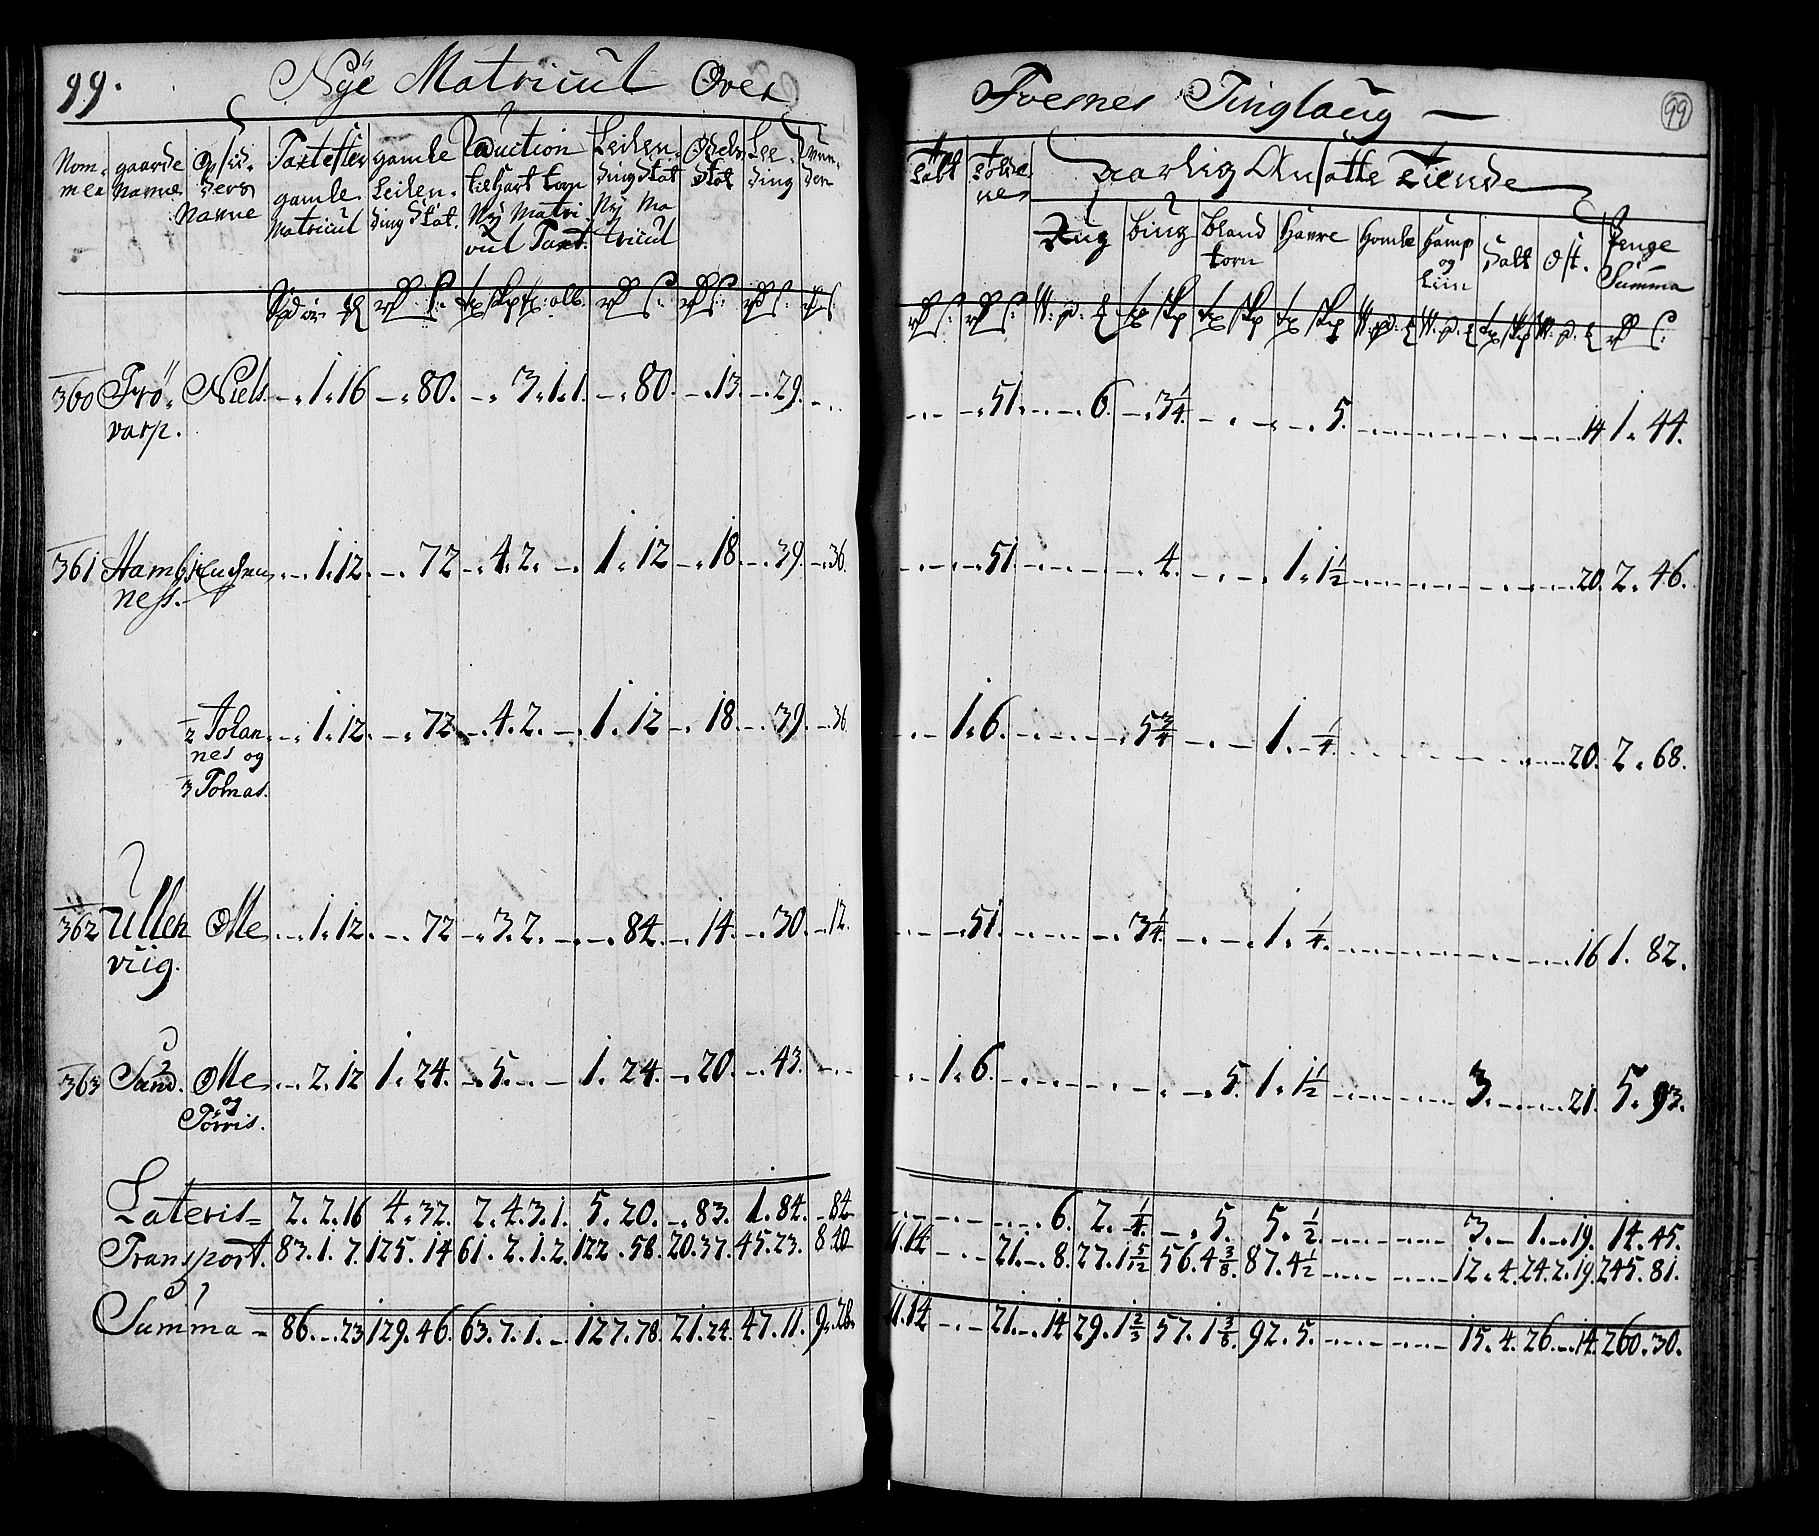 99. Nÿe Matricul Over
Foesnes Tinglaug — 99
Nom- gaarde Opsid- Taxt efter gamle Reduction Leilen- Odels Lee-
mer Navne ders gamle Leilen- til hart korn ding Skat Skat ding
Navne Matricul ding Skat. Nÿ Matri- Nÿ Ma
cul Taxt. tricul
aarlig Ansatte Tiende
Rug biug bland Havre Homle Hamp Salt Ost. Penge
korn og Summa
Liin
360 Frö- Niels - . 1. 16 - . 80. - . 3. 1. 1. - . 80. - . 13. - . 29. - . . 51. 6. 3¼. 5. 14 1. 44.
varp.
361 Hamb 1. 12. - . 72 - . 4. 2. - . 1. 12 - . 18. - . 39. - . 36. 51. 4. 1. 1½ 20. 2. 46.
ness.
½ Johan- - . 1. 12. - . 72 - . 4. 2. - 1. 12 - . 18. - . 39. - . 36 1. 6. 5¾ 1. - ¼. 20. 2. 68.
nes og
⅓ Tomas.
362 Ullen Olle - . 1. 12. - . 72 - . 3. 2. - . - . 84. - . 14. - . 30. - . 12. 51. 3¼. 1. ¼. 16 1. 82.
viig.
363 Sund. Olle - . 2. 12 1. 24. - . 5. - . 1. 24. - . 20. - . 43. - . . 1. 6. 5. 1. 1½ 3. 21. 5. 93.
og
Törris.
Lateris = 2. 2. 16 4. 32. 2. 4. 3. 1. 5. 20. - . 83. 1. 84. - 84 6. 2. ¼. - . 5. 5. ½. 3. - 1. - . 19. 14. 45.
Transport. 83. 1. 7. 125. 14 61. 2. 1. 2. 122. 58. 20. 37. 45. 23. 8 40 11. 14 - . - 21. - . 8. 27. 1 5/12 56. 4⅜. 87. 4½ 12. 4. 24. 2. 19. 245. 81.
Summa - 86. - . 23 129. 46. 63. 7. 1. - 127. 78. 21. 24. 47. 11. 9. 28. 11. 14 - . - 21. - . 14 29. 1⅔ 57. 1⅜. 92. 5. 15. 4. 26. - . 14. 260. 30.